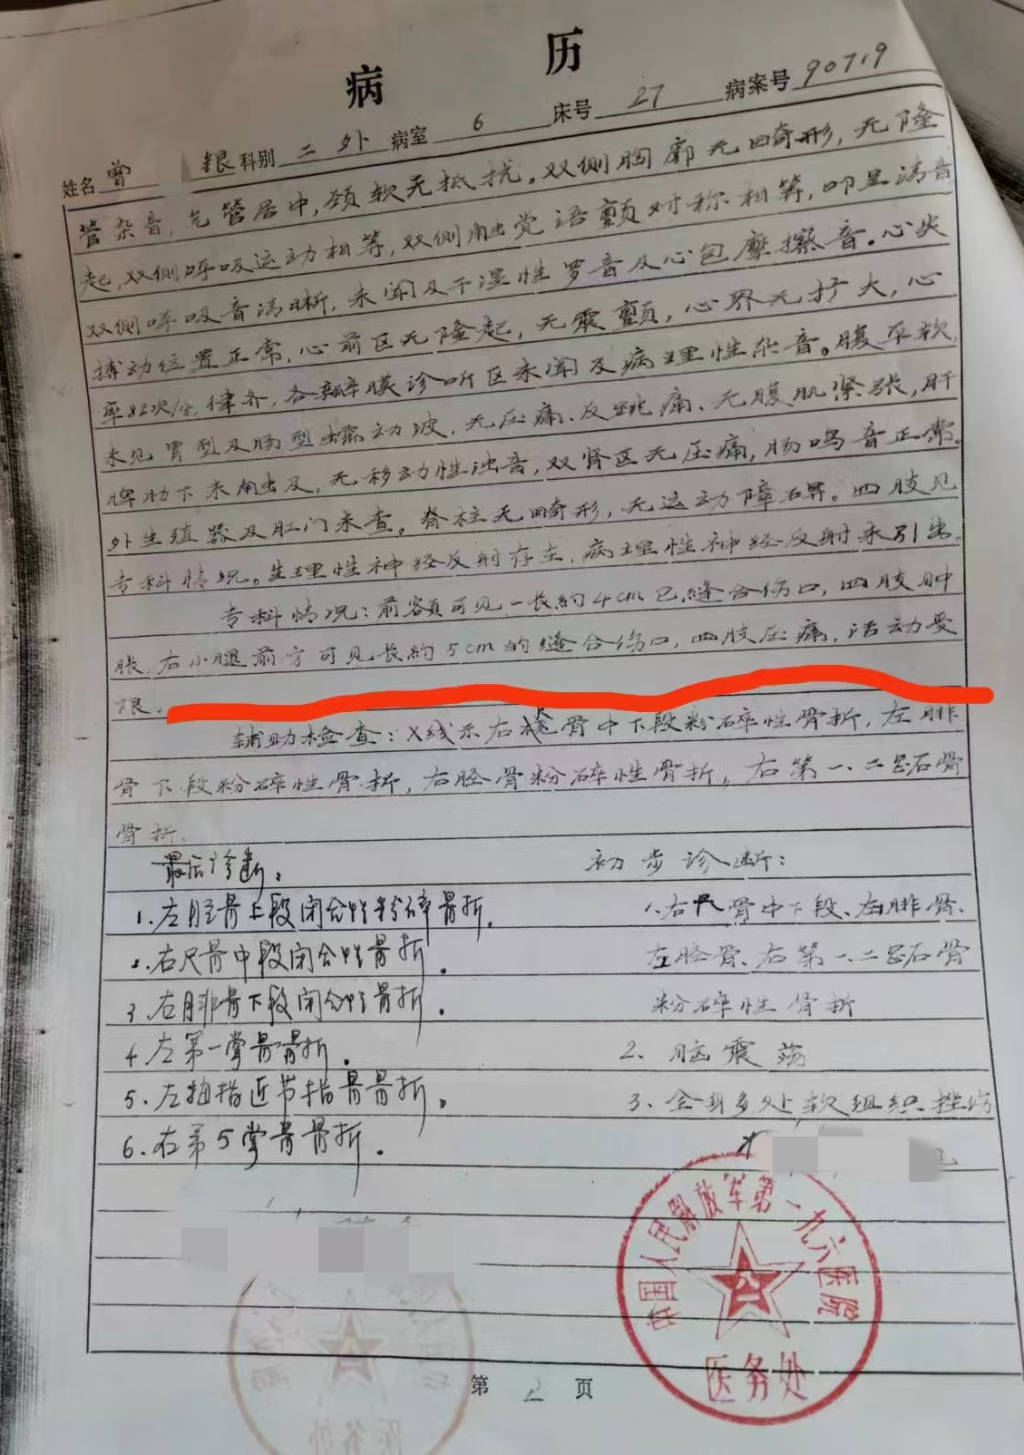 病 历
姓名 曾 银 科别 二外 病室 6 床号 27 病案号 90719
管杂音,气管居中,颈软无抵抗。双侧胸廓无畸形,无隆
起,双侧呼吸运动相等,双侧触觉语颤对称相等,叩呈清音
双侧呼吸音清晰,未闻及干湿性罗音及心包摩擦音。心尖
搏动位置正常,心前区无隆起,无震颤,心界无扩大,心
率82次/分,律齐,各瓣膜诊听区未闻及病理性杂音。腹平软,
未见胃型及肠型蠕动波,无压痛、反跳痛、无腹肌紧张,肝
脾肋下未触及,无移动性浊音,双肾区无压痛,肠鸣音正常。
外生殖器及肛门未查。脊柱无畸形,无运动障碍。四肢见
专科情况。生理性神经反射存在,病理性神经反射未引出。
专科情况:前额可见一长约4cm已缝合伤口,四肢肿
胀,右小腿前方可见长约5cm的缝合伤口,四肢压痛,活动受
限。
辅助检查:X线示右尺骨中下段粉碎性骨折,左腓
骨下段粉碎性骨折,右胫骨粉碎性骨折,右第一、二跖骨
骨折.
最后诊断: 初步诊断:
1.左胫骨上段闭合性粉碎骨折. 1.右尺骨中下段、左腓骨、
2.右尺骨中段闭合性骨折. 左胫骨、右第一、二跖骨
3.右腓骨下段闭合性骨折. 粉碎性骨折
4.左第一掌骨骨折. 2.脑震荡
5.左拇指近节指骨骨折. 3.全身多处软组织挫伤
6.右第5掌骨骨折.
中国人民解放军第一九六医院
医务处
医务处
第 2 页